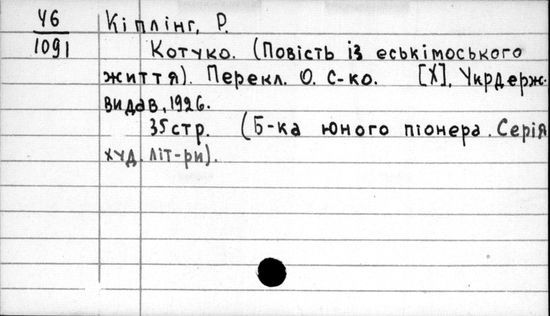 У6
1091
Кіплінг, Р.
Котуко. (Повість із еськімоського
життя). Перекл. О. С-ко. [Х], Укрдерж-
видав, 1926.
35 стр. (Б-ка юного піонера. Серія
худ. літ-ри).